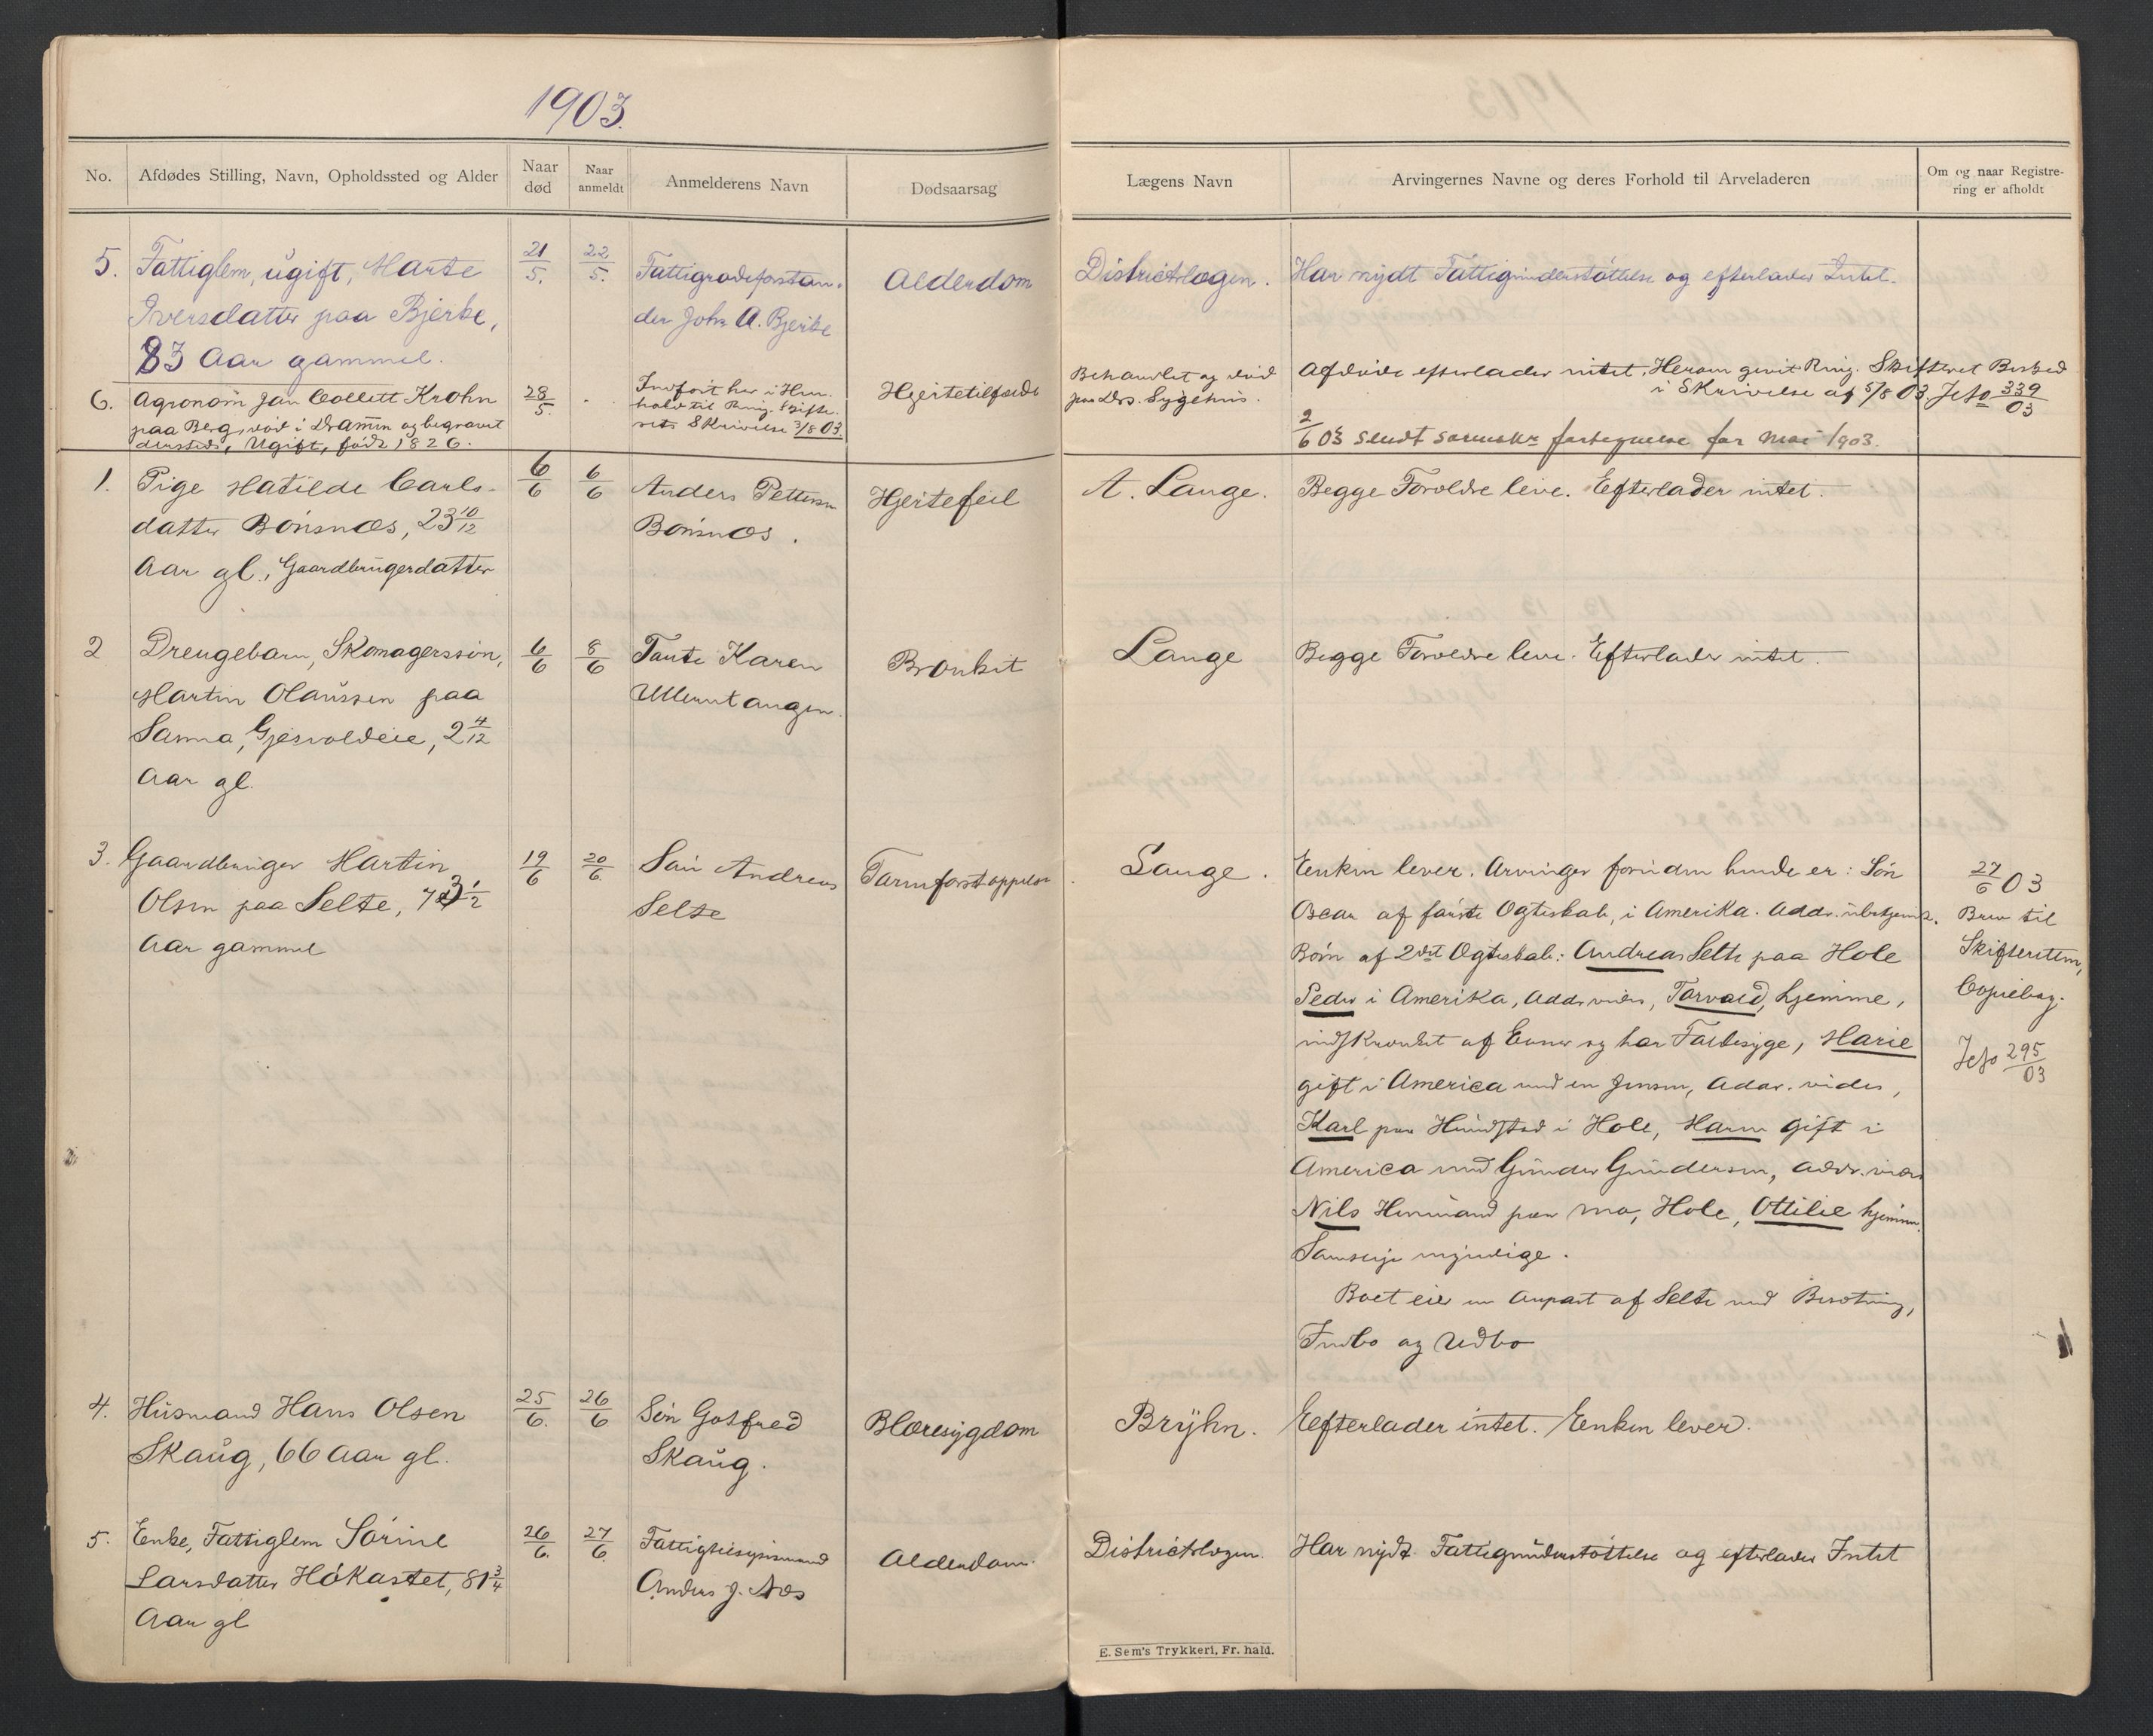 1903.
No.
Afdødes Stilling, Navn, Opholdssted og Alder
Naar død
Naar anmeldt
Anmelderens Navn
Dødsaarsag
Lægens Navn
Arvingernes Navne og deres Forhold til Arveladeren
Om og naar Registrering er afholdt
5. Fattiglem, ugift, Marte
Iversdatter paa Bjerke,
83 Aar gammel.
21/5.
22/5.
Fattigraadsforstan-
der Johs A. Bjerke
Alderdom
Districtslægen.
Har nydt Fattigunderstøttelse og efterlader Intet.
6. Agronom Jan Collett Krohn
paa Berg, død i Dramm og begravet
dersteds, Ugift, født 1826.
28/5
Indført her i Hen-
hold til Ring. Skifte-
rets Skrivelse 3/8 03.
Hjertetilfælde
Behandlet og død
paa Drs. Sygehus.
Afdøde efterlader intet. Herom givet Ring. Skifteret Besked
i Skrivelse af 5/8 03. Jcfo 339/03
2/6 03 sendt fortegnelse for Mai 1903.
1. Pige Matilde Carls-
datter Bønsnæs, 23 10/12
Aar gl., Gaardbrugerdatter
6/6
6/6
Anders Pettersen
Bønsnæs.
Hjertefeil
A. Lange.
Begge Forældre leve. Efterlader intet.
2 Drengebarn, Skomagersøn,
Martin Olaussen paa
Sanna, Gjesvoldeie, 2 4/12
Aar gl.
6/6
8/6
Tante Karen
Ullerntangen.
Bronkit
Lange
Begge Forældre leve. Efterlader intet.
3. Gaardbruger Martin
Olsen paa Selte, 73 1/2
Aar gammel
19/6
20/6.
Søn Andreas
Selte
Tarmforstoppelse
Lange.
Enken lever. Arvinger foruden hende er: Søn
Oscar af første Ægteskab, i Amerika. Addr. ubekjendt.
Børn af 2det Ægteskab: Andreas Selte paa Hole
Peder i Amerika, Addr. vides, Torvald, hjemme,
indskrænket af Evner og har Faldesyge, Marie
gift i America med en Jensen, Addr. vides,
Karl paa Hundstad i Hole, Maren gift i
America med Gunder Gundersen, Addr. vides
Nils Husmand paa Mo, Hole, Ottilie hjemme.
Samtlige myndige.
Boet eier en Anpart af Selte med Besætning,
Indbo og Udbo
27/6 03
Brev til
Skifteretten,
Copiebog.
Jcfo 295/03
4. Husmand Hans Olsen
Skaug, 66 Aar gl.
25/6.
26/6
Søn Gotfred
Skaug.
Blæresygdom
Bryhn.
Efterlader intet. Enken lever.
5. Enke, Fattiglem Sørine
Larsdatter Høkastet, 81 3/4
Aar gl
26/6.
27/6.
Fattigtilsynsmand
Anders J. Næs
Alderdom.
Districtslægen.
Har nydt Fattigunderstøttelse og efterlader Intet
E. Sem's Trykkeri, Fr. hald.